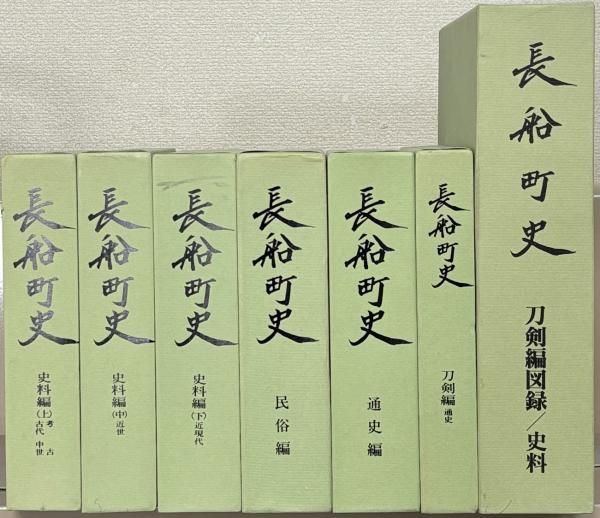 長船町史
史料編(上)考古 古代 中世
長船町史
史料編(中)近世
長船町史
史料編(下)近現代
長船町史
民俗編
長船町史
通史編
長船町史
刀剣編 通史
長船町史
刀剣編図録/史料